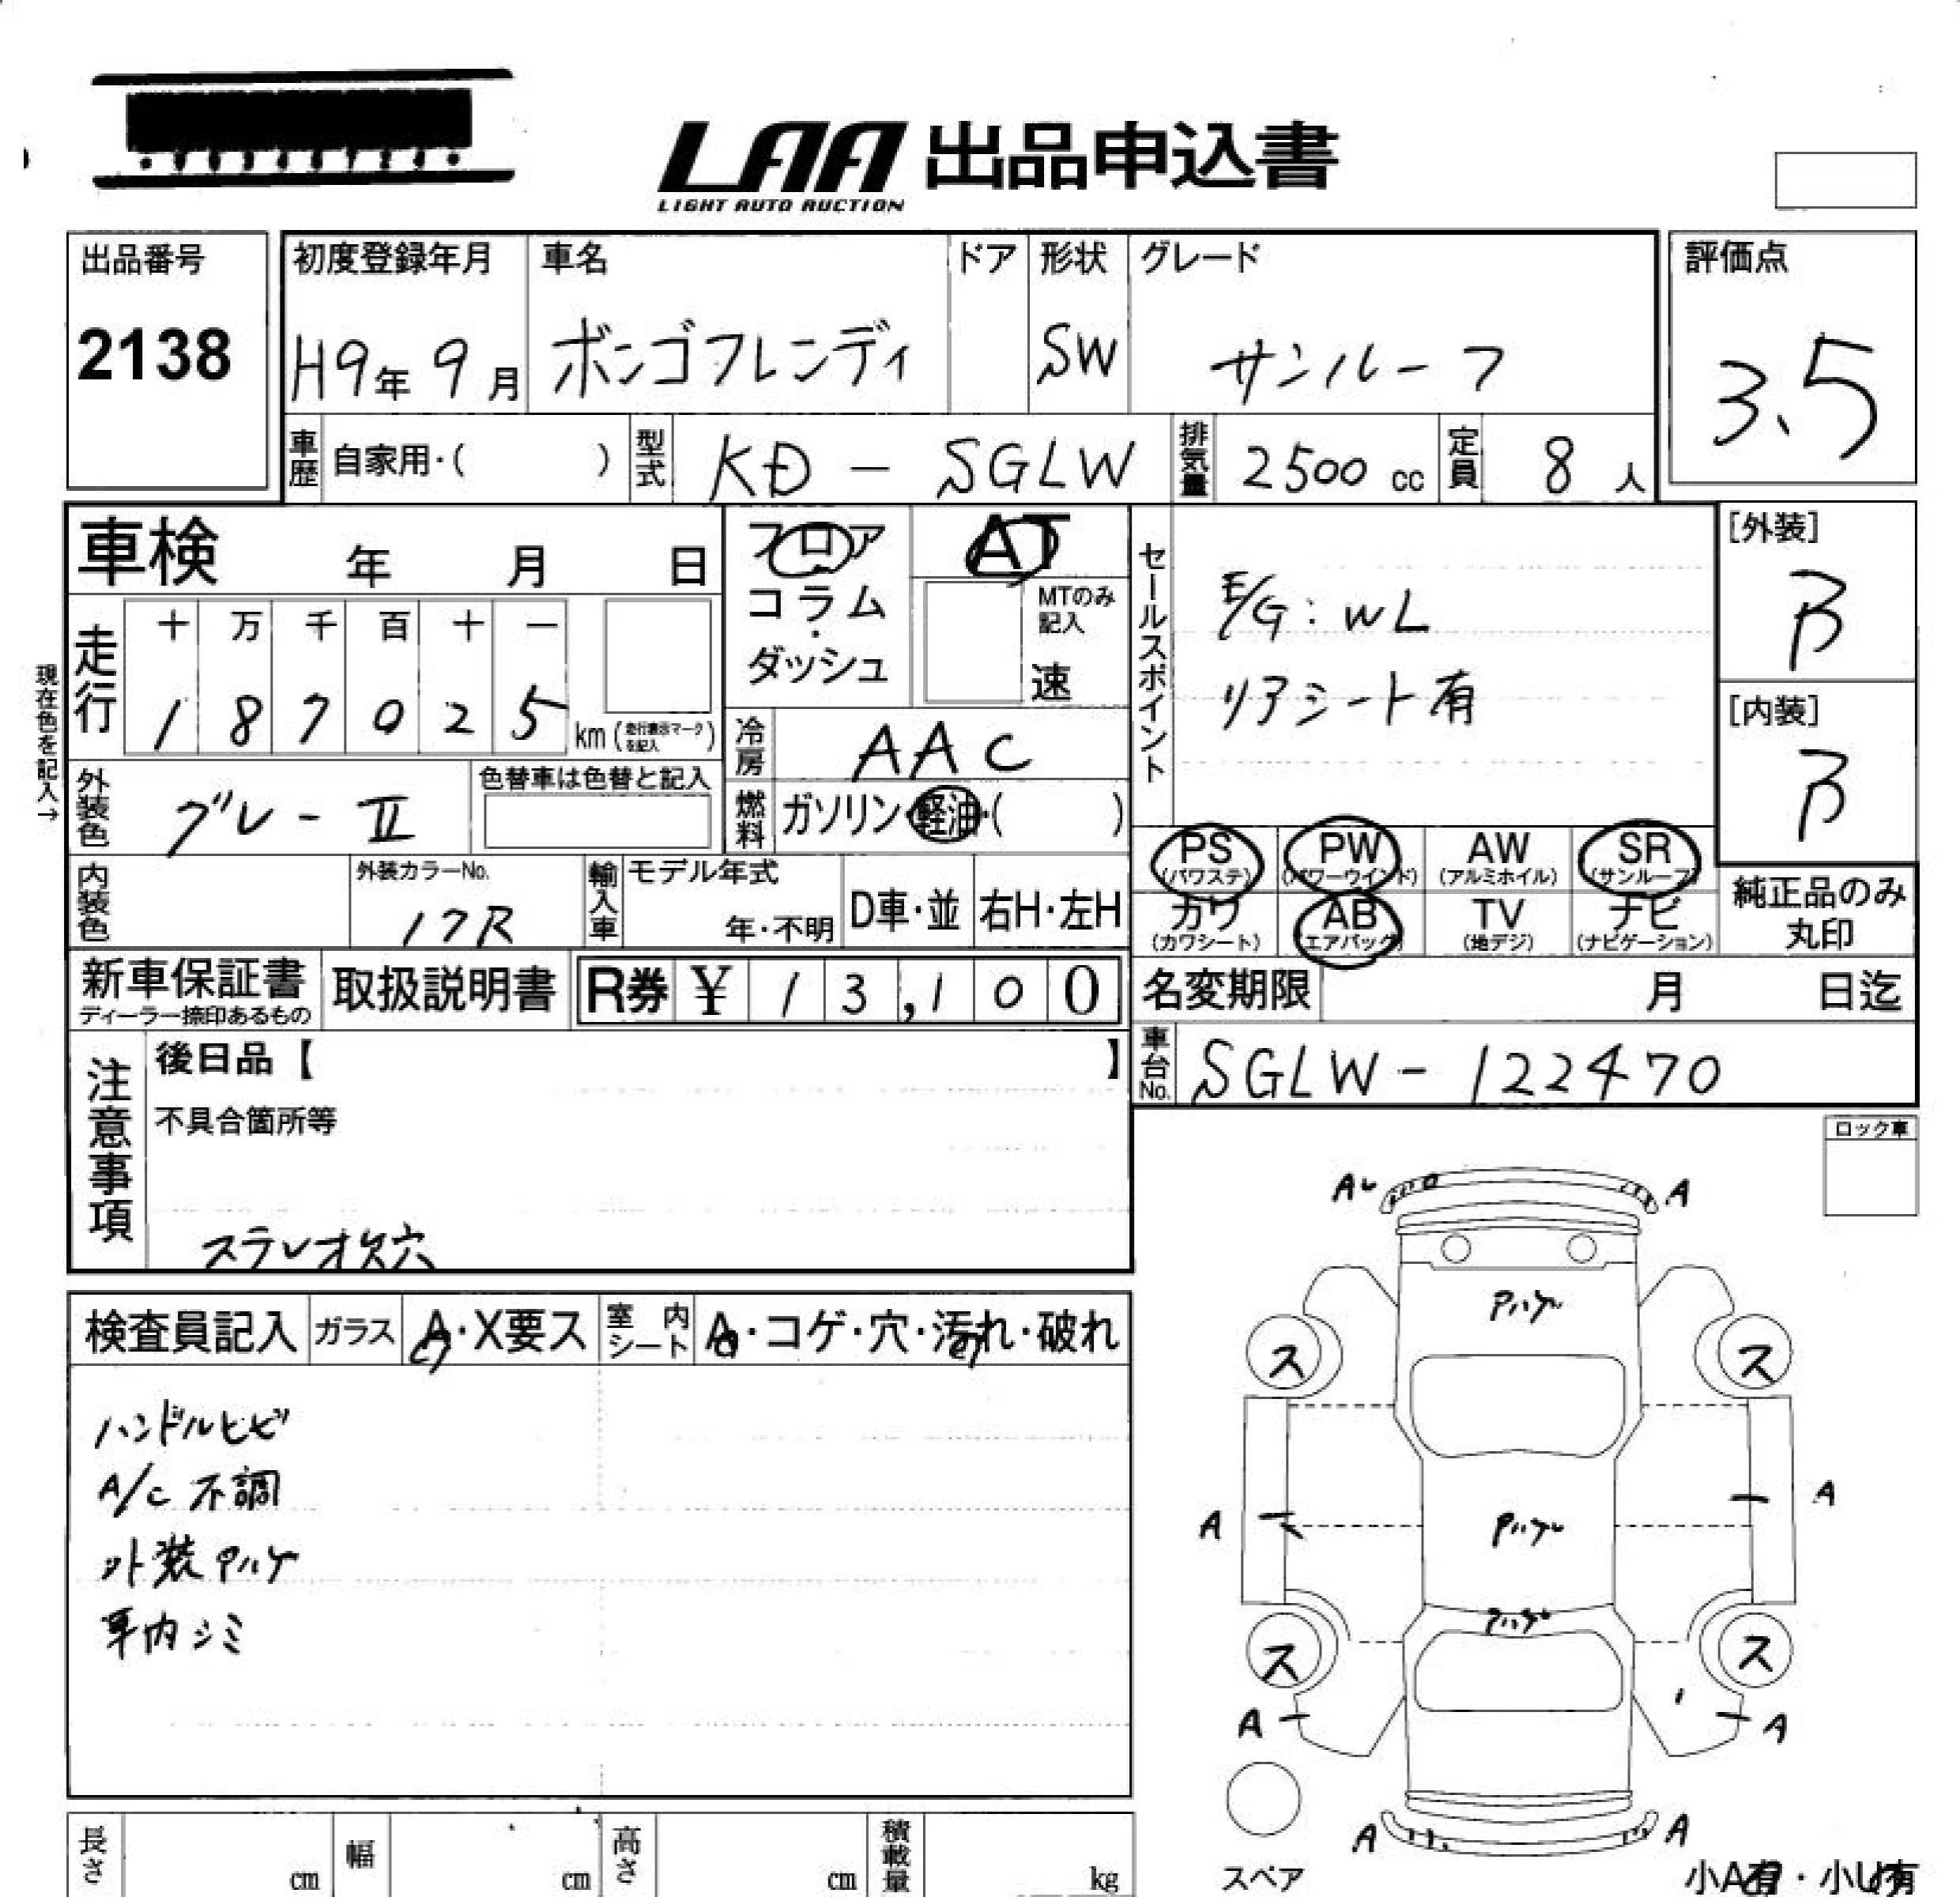 LAA 出品申込書
LIGHT AUTO AUCTION
出品番号
2138
初度登録年月
H9年 9月
車名
ボンゴフレンディ
ドア
形状
SW
グレード
サンルーフ
評価点
3.5
車歴 自家用・( )
型式 KD - SGLW
排気量 2500 cc
定員 8 人
車検 年 月 日
フロア
コラム
・
ダッシュ
AT
MTのみ
記入
速
セールスポイント
E/G:WL
リアシート有
[外装]
B
[内装]
B
現在色を記入→
走行
十 万 千 百 十 一
1 8 7 0 2 5 km (走行表示マークを記入)
冷房 AAC
外装色 グレーII
色替車は色替と記入
燃料 ガソリン・軽油・( )
PS (パワステ)
PW (パワーウインド)
AW (アルミホイル)
SR (サンルーフ)
カワ (カワシート)
AB (エアバッグ)
TV (地デジ)
ナビ (ナビゲーション)
純正品のみ
丸印
内装色
外装カラーNo.
17R
輸入車
モデル年式
年・不明
D車・並
右H・左H
新車保証書
ディーラー捺印あるもの
取扱説明書
R券 ¥ 13,100
名変期限 月 日迄
車台No. SGLW-122470
注意事項
後日品【 】
不具合箇所等
ステレオ欠穴
ロック車
検査員記入
ガラス A・X要ス
室内シート A・コゲ・穴・汚れ・破れ
ハンドルヒビ
A/C 不調
外装Pハゲ
車内シミ
A A
Pハゲ
ス ス
A Pハゲ A
Pハゲ
ス ス
A A
スペア
A A
小A有・小U有
長さ cm
幅 cm
高さ cm
積載量 kg